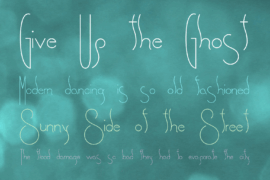 Give Up the Ghost
Modern dancing is so old fashioned
Sunny Side of the Street
The flood damage was so bad they had to evaporate the city